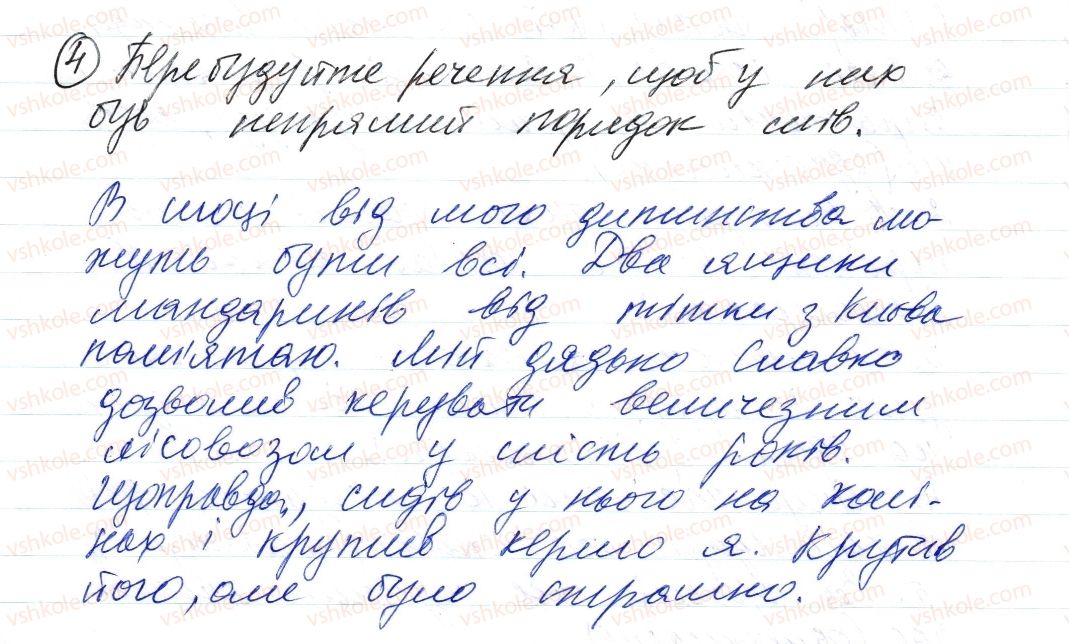 4 Перебудуйте речення, щоб у них
був непрямий порядок слів.
В шоці від мого дитинства мо-
жуть бути всі. Два ящики
мандаринів від тітки з Києва
пам'ятаю. Мій дядько Славко
дозволив керувати величезним
лісовозом у шість років.
Щоправда, сидів у нього на колі-
нах і крутив кермо я. Крутив
його, але було страшно.